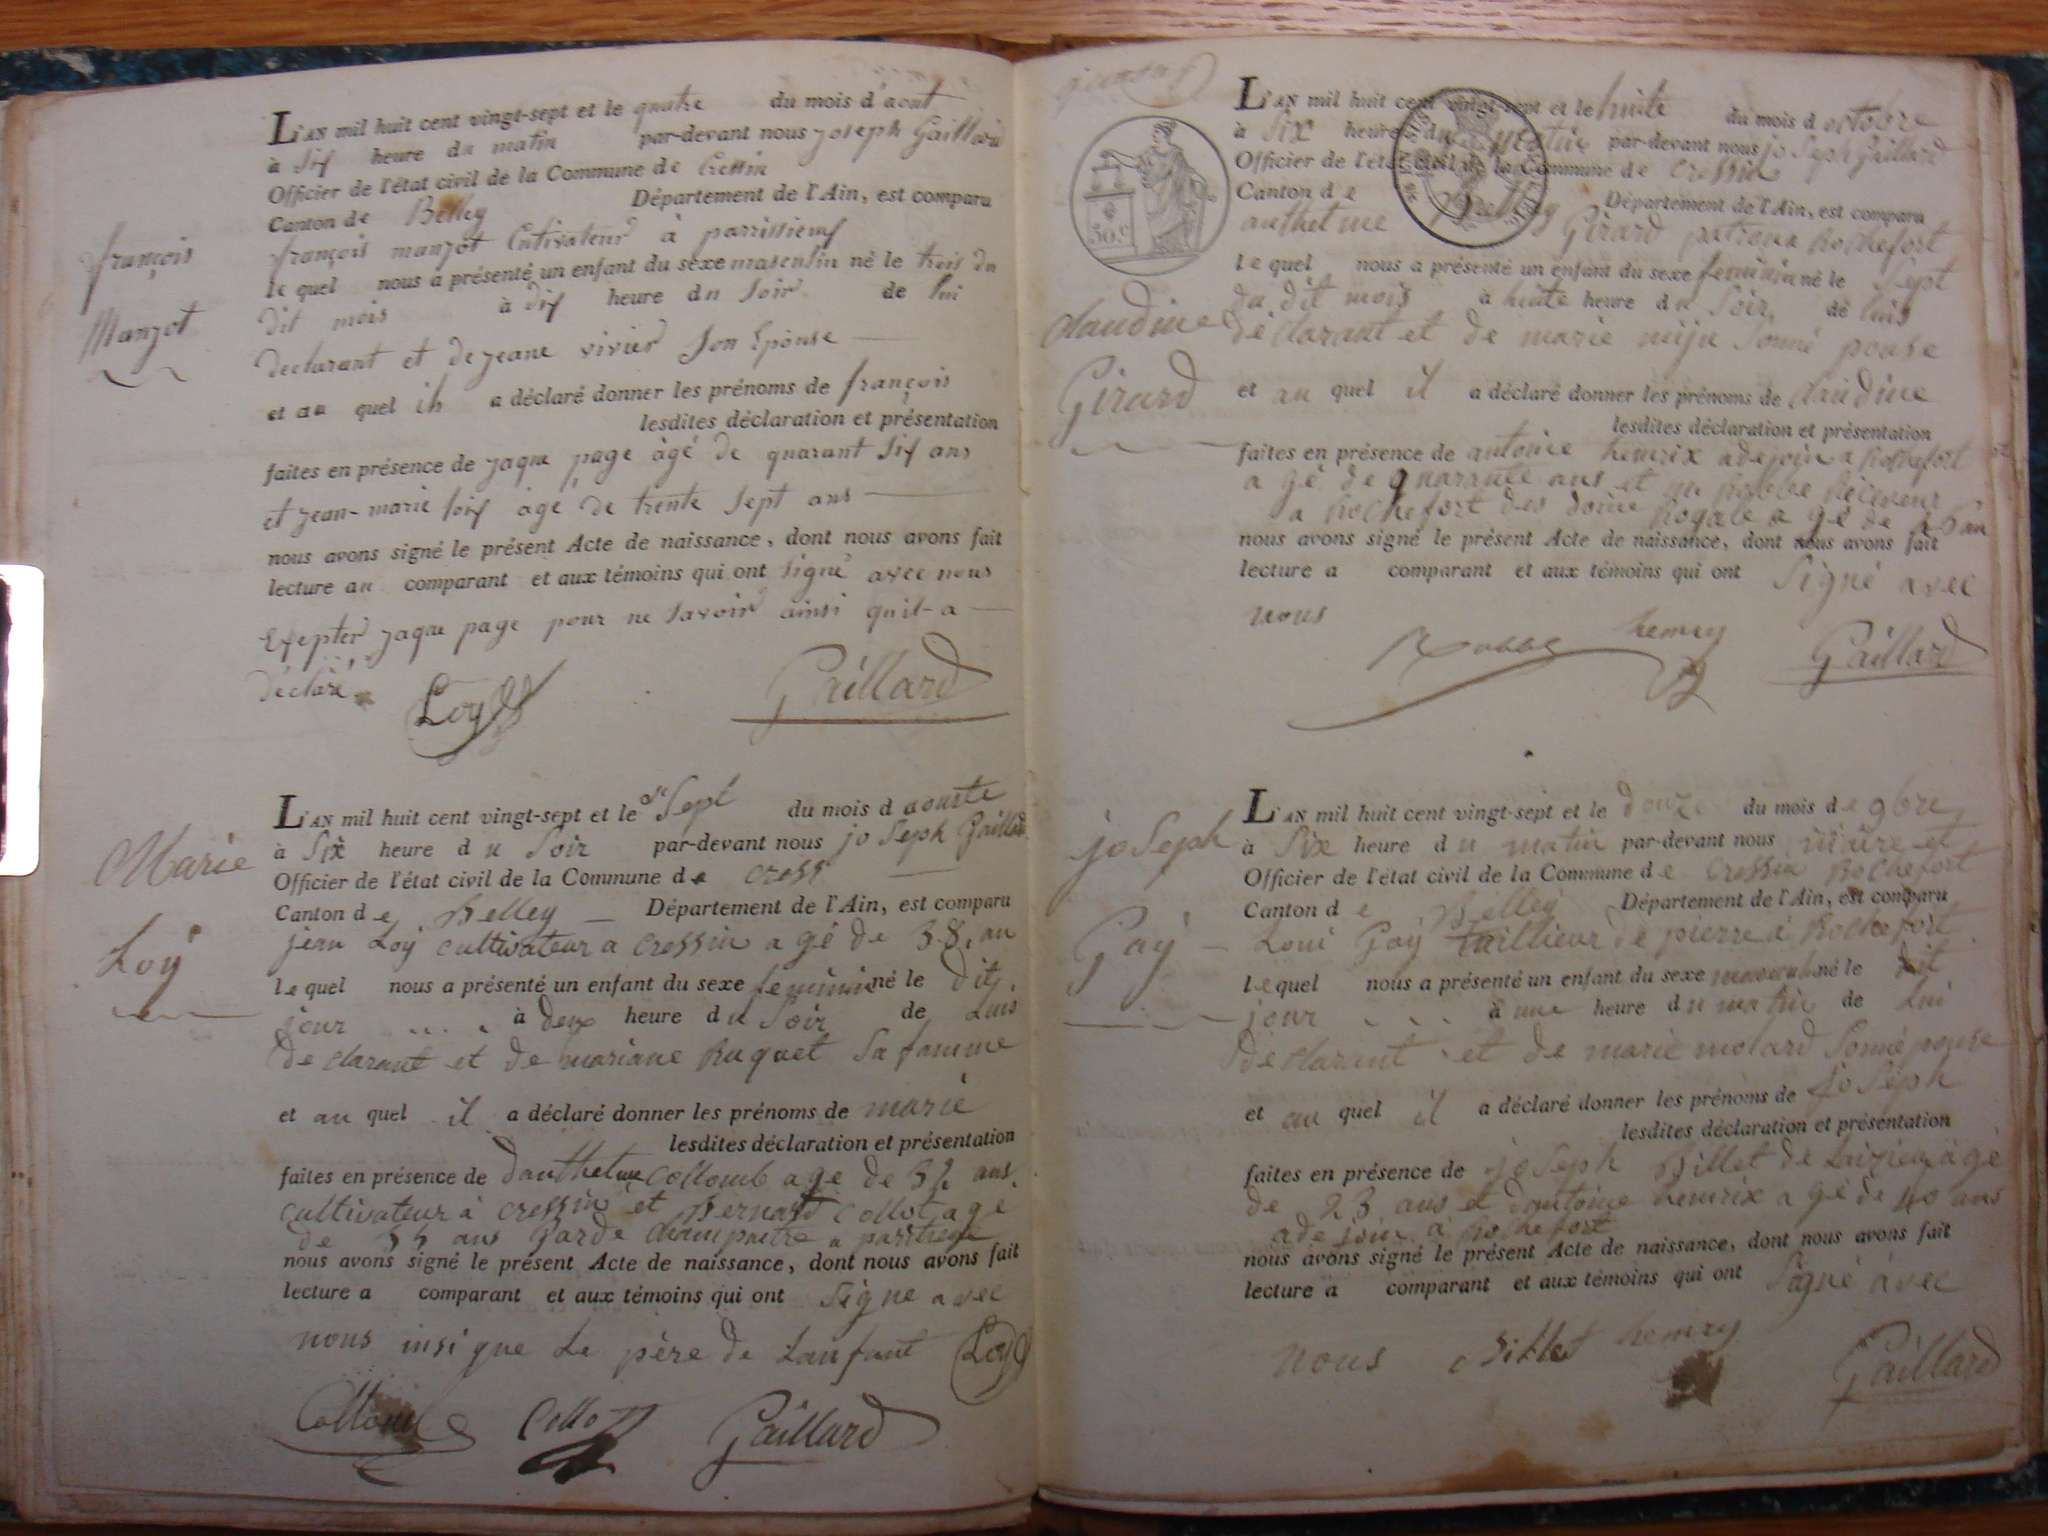 L'AN mil huit cent vingt-sept et le quatre du mois d'aout
à six heure du matin par-devant nous joseph Gaillard
Officier de l'état civil de la Commune de Cressin
Canton de Belley Département de l'Ain, est comparu
françois manjot Cutivateur à parrissieux
le quel nous a présenté un enfant du sexe masculin né le trois du
dit mois à dix heure du soir de lui
declarant et de jeane vivier son Epouse
et au quel il a déclaré donner les prénoms de françois
lesdites déclaration et présentation
faites en présence de jaque page âgé de quarant six ans
et jean-marie loix âgé de trente sept ans
nous avons signé le présent Acte de naissance, dont nous avons fait
lecture au comparant et aux témoins qui ont signé avec nous
Exepter jaque page pour ne savoir ainsi qu'il-a
déclaré
Loy Gaillard
françois
Manjot
L'AN mil huit cent vingt-sept et le Sept du mois d aouste
à Six heure du Soir par-devant nous jo Seph Gaillard
Officier de l'état civil de la Commune de cress
Canton de Belley Département de l'Ain, est comparu
jean Loÿ cultivateur a cressin a gé de 38 an
le quel nous a présenté un enfant du sexe feminin né le dit
jour à deux heure du Soir de Luis
de clarant et de mariane Ruquet Sa famme
et au quel il a déclaré donner les prénoms de marie
lesdites déclaration et présentation
faites en présence de danthelme collomb a gé de 32 ans
cultivateur à cressin et Bernard collot a gé
de 55 ans Garde champaitre a
nous avons signé le présent Acte de naissance, dont nous avons fait
lecture a comparant et aux témoins qui ont Signe avec
nous insi que Le père de Lanfant Loy
Collomb Collot Gaillard
Marie
Loÿ
L'AN mil huit cent vingt-sept et le huite du mois d octobre
à Six heure du matin par-devant nous jo Seph Gaillard
Officier de l'état civil de la Commune de cressin
Canton de Belley Département de l'Ain, est comparu
anthelme Girard patron a Rochefort
le quel nous a présenté un enfant du sexe feminin né le Sept
du dit mois à huite heure du Soir de luis
de clarant et de marie Sonné pouse
et au quel il a déclaré donner les prénoms de claudine
lesdites déclaration et présentation
faites en présence de antoine hemrix adejoin a Rochefort
a gé de quarante ans et receveur
a Rochefort des doine Royale a gé de an
nous avons signé le présent Acte de naissance, dont nous avons fait
lecture a comparant et aux témoins qui ont Signé avec
nous
hemry Gaillard
30.c
claudine
Girard
L'AN mil huit cent vingt-sept et le douze du mois de 9bre
à Six heure du matin par-devant nous maire et
Officier de l'état civil de la Commune de Cressin Rochefort
Canton de Belley Département de l'Ain, est comparu
Loui Gaÿ taillieur de pierre à Rochefort
le quel nous a présenté un enfant du sexe masculin né le dit
jour à une heure du matin de Lui
de clarant et de marie molard Sonné pouse
et au quel il a déclaré donner les prénoms de jo Seph
lesdites déclaration et présentation
faites en présence de jo Seph Billet de Lavieu à gé
de 23 ans et dantoine hemrix a gé de 40 ans
ade join à Rochefort
nous avons signé le présent Acte de naissance, dont nous avons fait
lecture a comparant et aux témoins qui ont Signé avec
nous Billet hemry Gaillard
jo Seph
Gaÿ